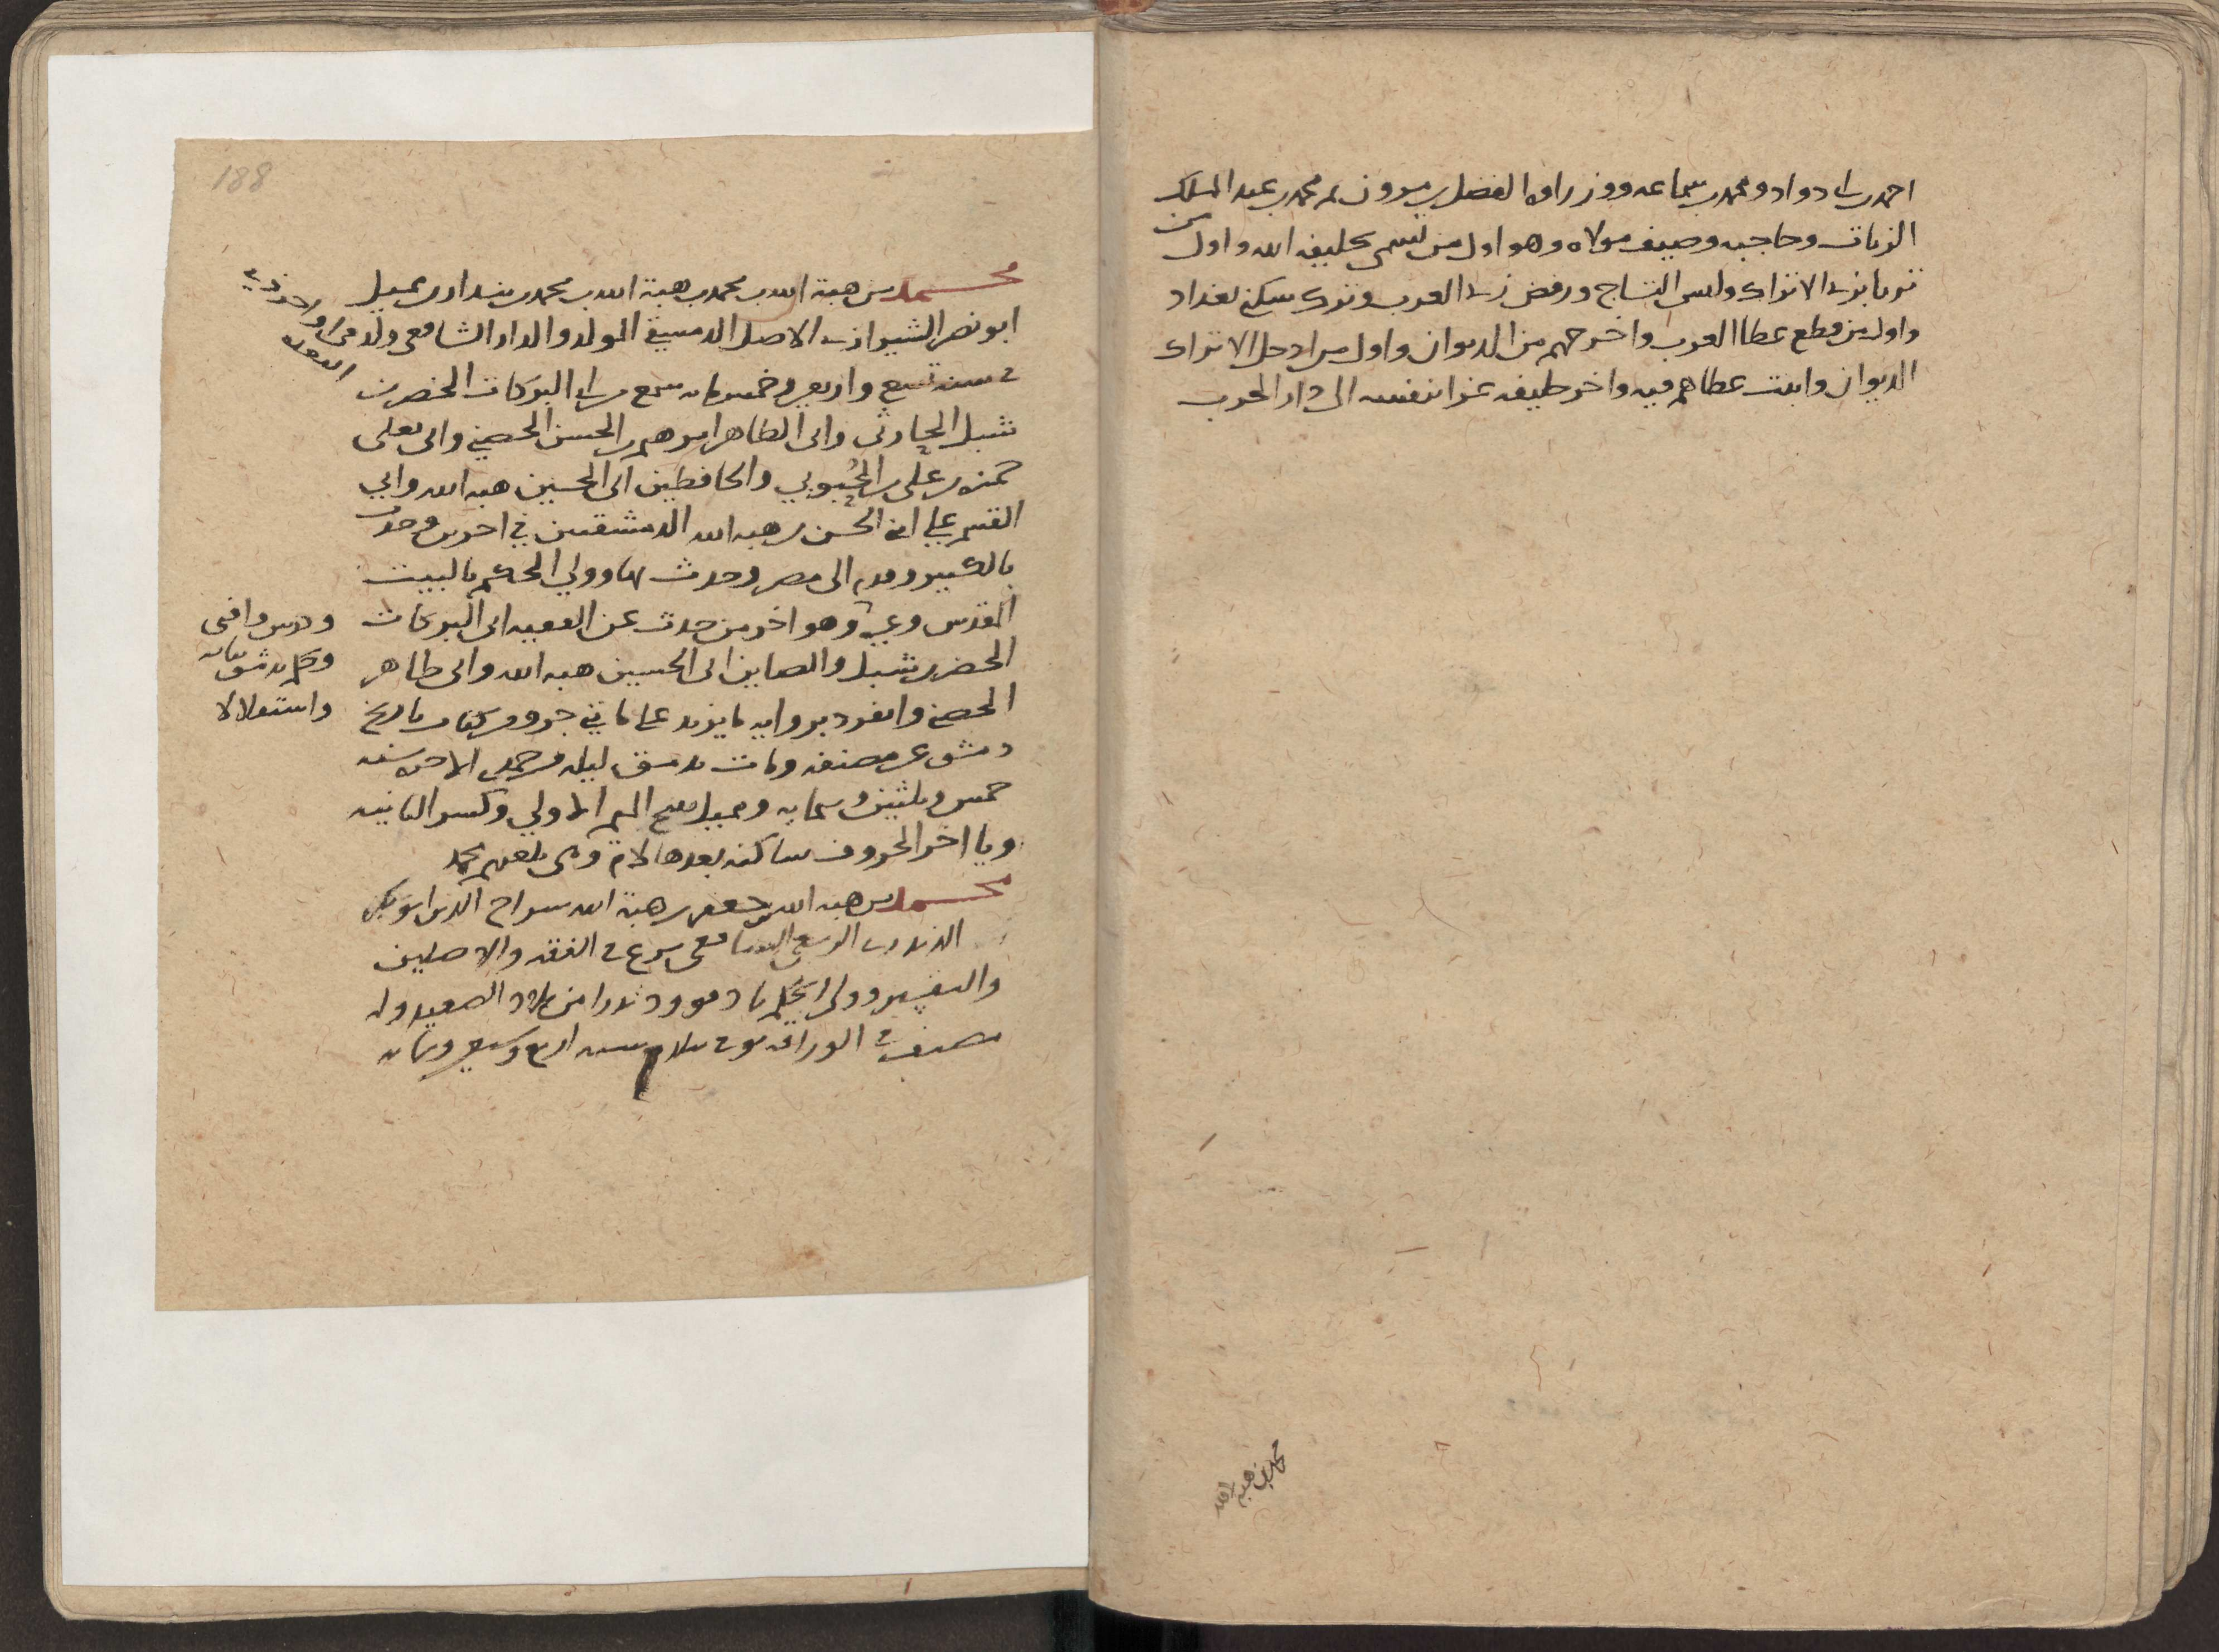 احمد بن ابى دواد ومحمد بن سماعه ووزراوه الفضل بن مروان ثم محمد بن عبد الملك
الزيات وحاجبه وصيف مولاه وهو اول من تسمى بخليفه الله واول من
تزيا بزى الاتراك ولبس التاج ورفض زى العرب وترك سكنى بغداد
واول من قطع عطا العرب واخرجهم من الديوان واول من ادخل الاتراك
الديوان واثبت عطاهم فيه واخر خليفه غزا بنفسه الى دار الحرب
محمد بن هبه الله
188
محمد بن هبة الله بن محمد بن هبة الله بن محمد بن بندار بن مميل
ابو نصر الشيرازى الاصل الدمشقى المولد والدار الشافعى ولد فى
ذى القعده
سنه تسع واربعين وخمسمايه سمع من ابى البركات الخضر بن
شبل الحارثى وابى الطاهر ابرهيم بن الحسن الحصنى وابى يعلى
حمزه بن على بن الحبوبي والحافظين ابى الحسين هبه الله وابي
القسم على ابنى الحسن بن هبه الله الدمشقيين في اخرين وحدث
بالكثير وقدم الى مصر وحدث بها وولي الحكم بالبيت
المقدس وغيره وهو اخر من حدث عن الفقيه ابى البركات
ودرس وافتى
الخضر بن شبل والصاين ابى الحسين هبه الله وابى طاهر
وحكم بدمشق نيابه
الحصنى وانفرد بروايه ما يزيد على مايتي جزو من كتاب تاريخ
واستقلالا
دمشق عن مصنفه ومات بدمشق ليله جمدى الاخره سنه
خمس وثلثين وستمايه ومميل بفتح الميم الاولي وكسر الثانيه
ويا اخر الحروف ساكنه بعدها لام وهى بلغتهم محمد
محمد بن هبه الله بن جعفر بن هبة الله سراج الدين ابو بكر
الربعى الشافعى برع فى الفقه والاصلين
والتفسير وولى الحكم با دفوو دندرا من بلاد الصعيد وله
مصنف فى الوراقه توفى سنه اربع وسبعين وستمايه